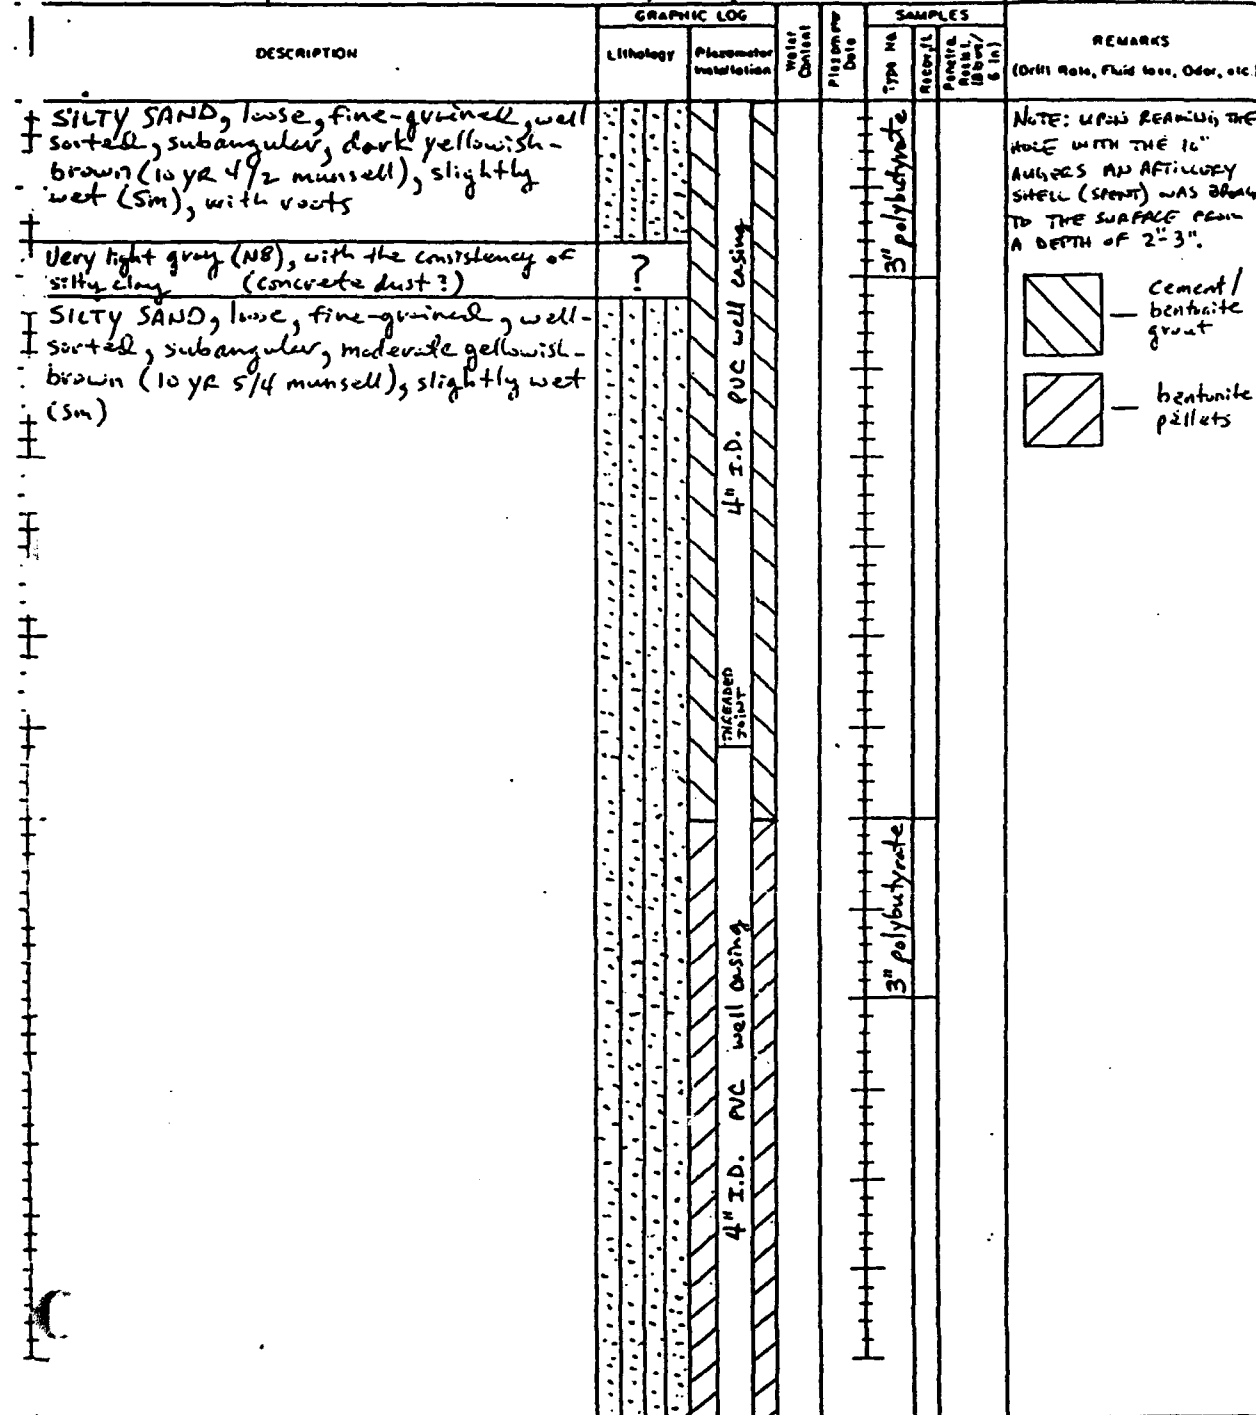 DESCRIPTION
GRAPHIC LOG
Lithology
Piezometer
Installation
Water
Content
Piezometer
Data
SAMPLES
Type No
Recov, ft
Penetra.
Resist.
(Blows/
6 in)
REMARKS
(Drill Rate, Fluid loss, Odor, etc.)
SILTY SAND, loose, fine-grained, well
sorted, subangular, dark yellowish-
brown (10 YR 4/2 munsell), slightly
wet (Sm), with roots
Very light gray (N8), with the consistency of
silty clay (concrete dust?)
SILTY SAND, loose, fine-grained, well-
sorted, subangular, moderate yellowish-
brown (10 YR 5/4 munsell), slightly wet
(Sm)
?
4" I.D. PVC well casing
THREADED
JOINT
4" I.D. PVC well casing
3" polybutyrate
3" polybutyrate
NOTE: UPON REAMING THE
HOLE WITH THE 10"
AUGERS AN ARTILLERY
SHELL (SPENT) WAS
TO THE SURFACE FROM
A DEPTH OF 2"-3".
cement/
bentonite
grout
bentonite
pellets